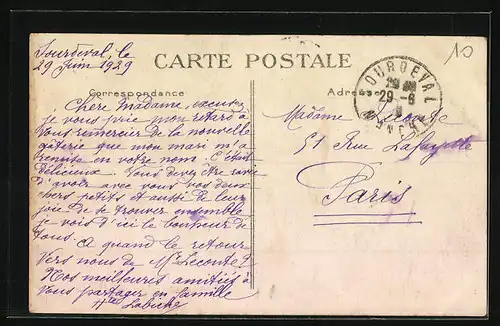 Sourdeval, le
29 Juin 1929
CARTE POSTALE
Correspondance
Adresse
Chère Madame, excusez
je vous prie mon retard à
vous remercier de la nouvelle
gâterie que mon mari m'a
remise en votre nom. C'était
délicieux. Vous devez être ravie
d'avoir avec vous vos deux
chers petits et aussi de leur
joie de se trouver ensemble
je vois d'ici le bonheur de
tous.
A quand le retour
vers nous de Mr Lecomte ?
Nos meilleures amitiés à
vous partager en famille
Labiche
SOURDEVAL
29-6
MANCHE
10
Madame Lecomte
51 Rue Lafayette
Paris